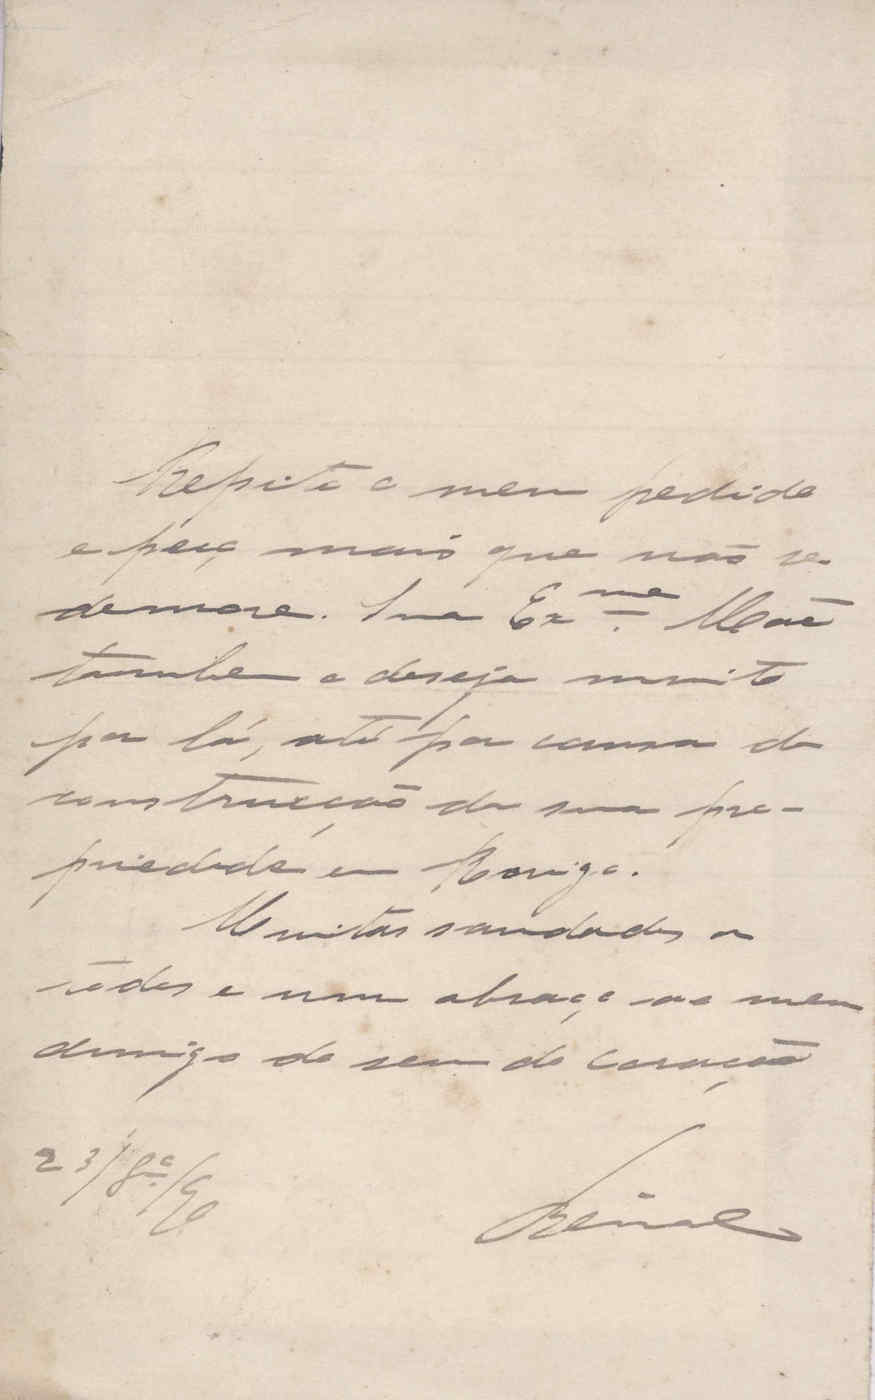 Repito o meu pedido
e peço mais que não se
demore. Sua Ex.ma Mãe
tambem o deseja muito
por lá, até por causa da
construcção da sua pro-
priedade em
Muitas saudades a
todos e um abraço ao meu
amigo do seu do coração
23/8º/96